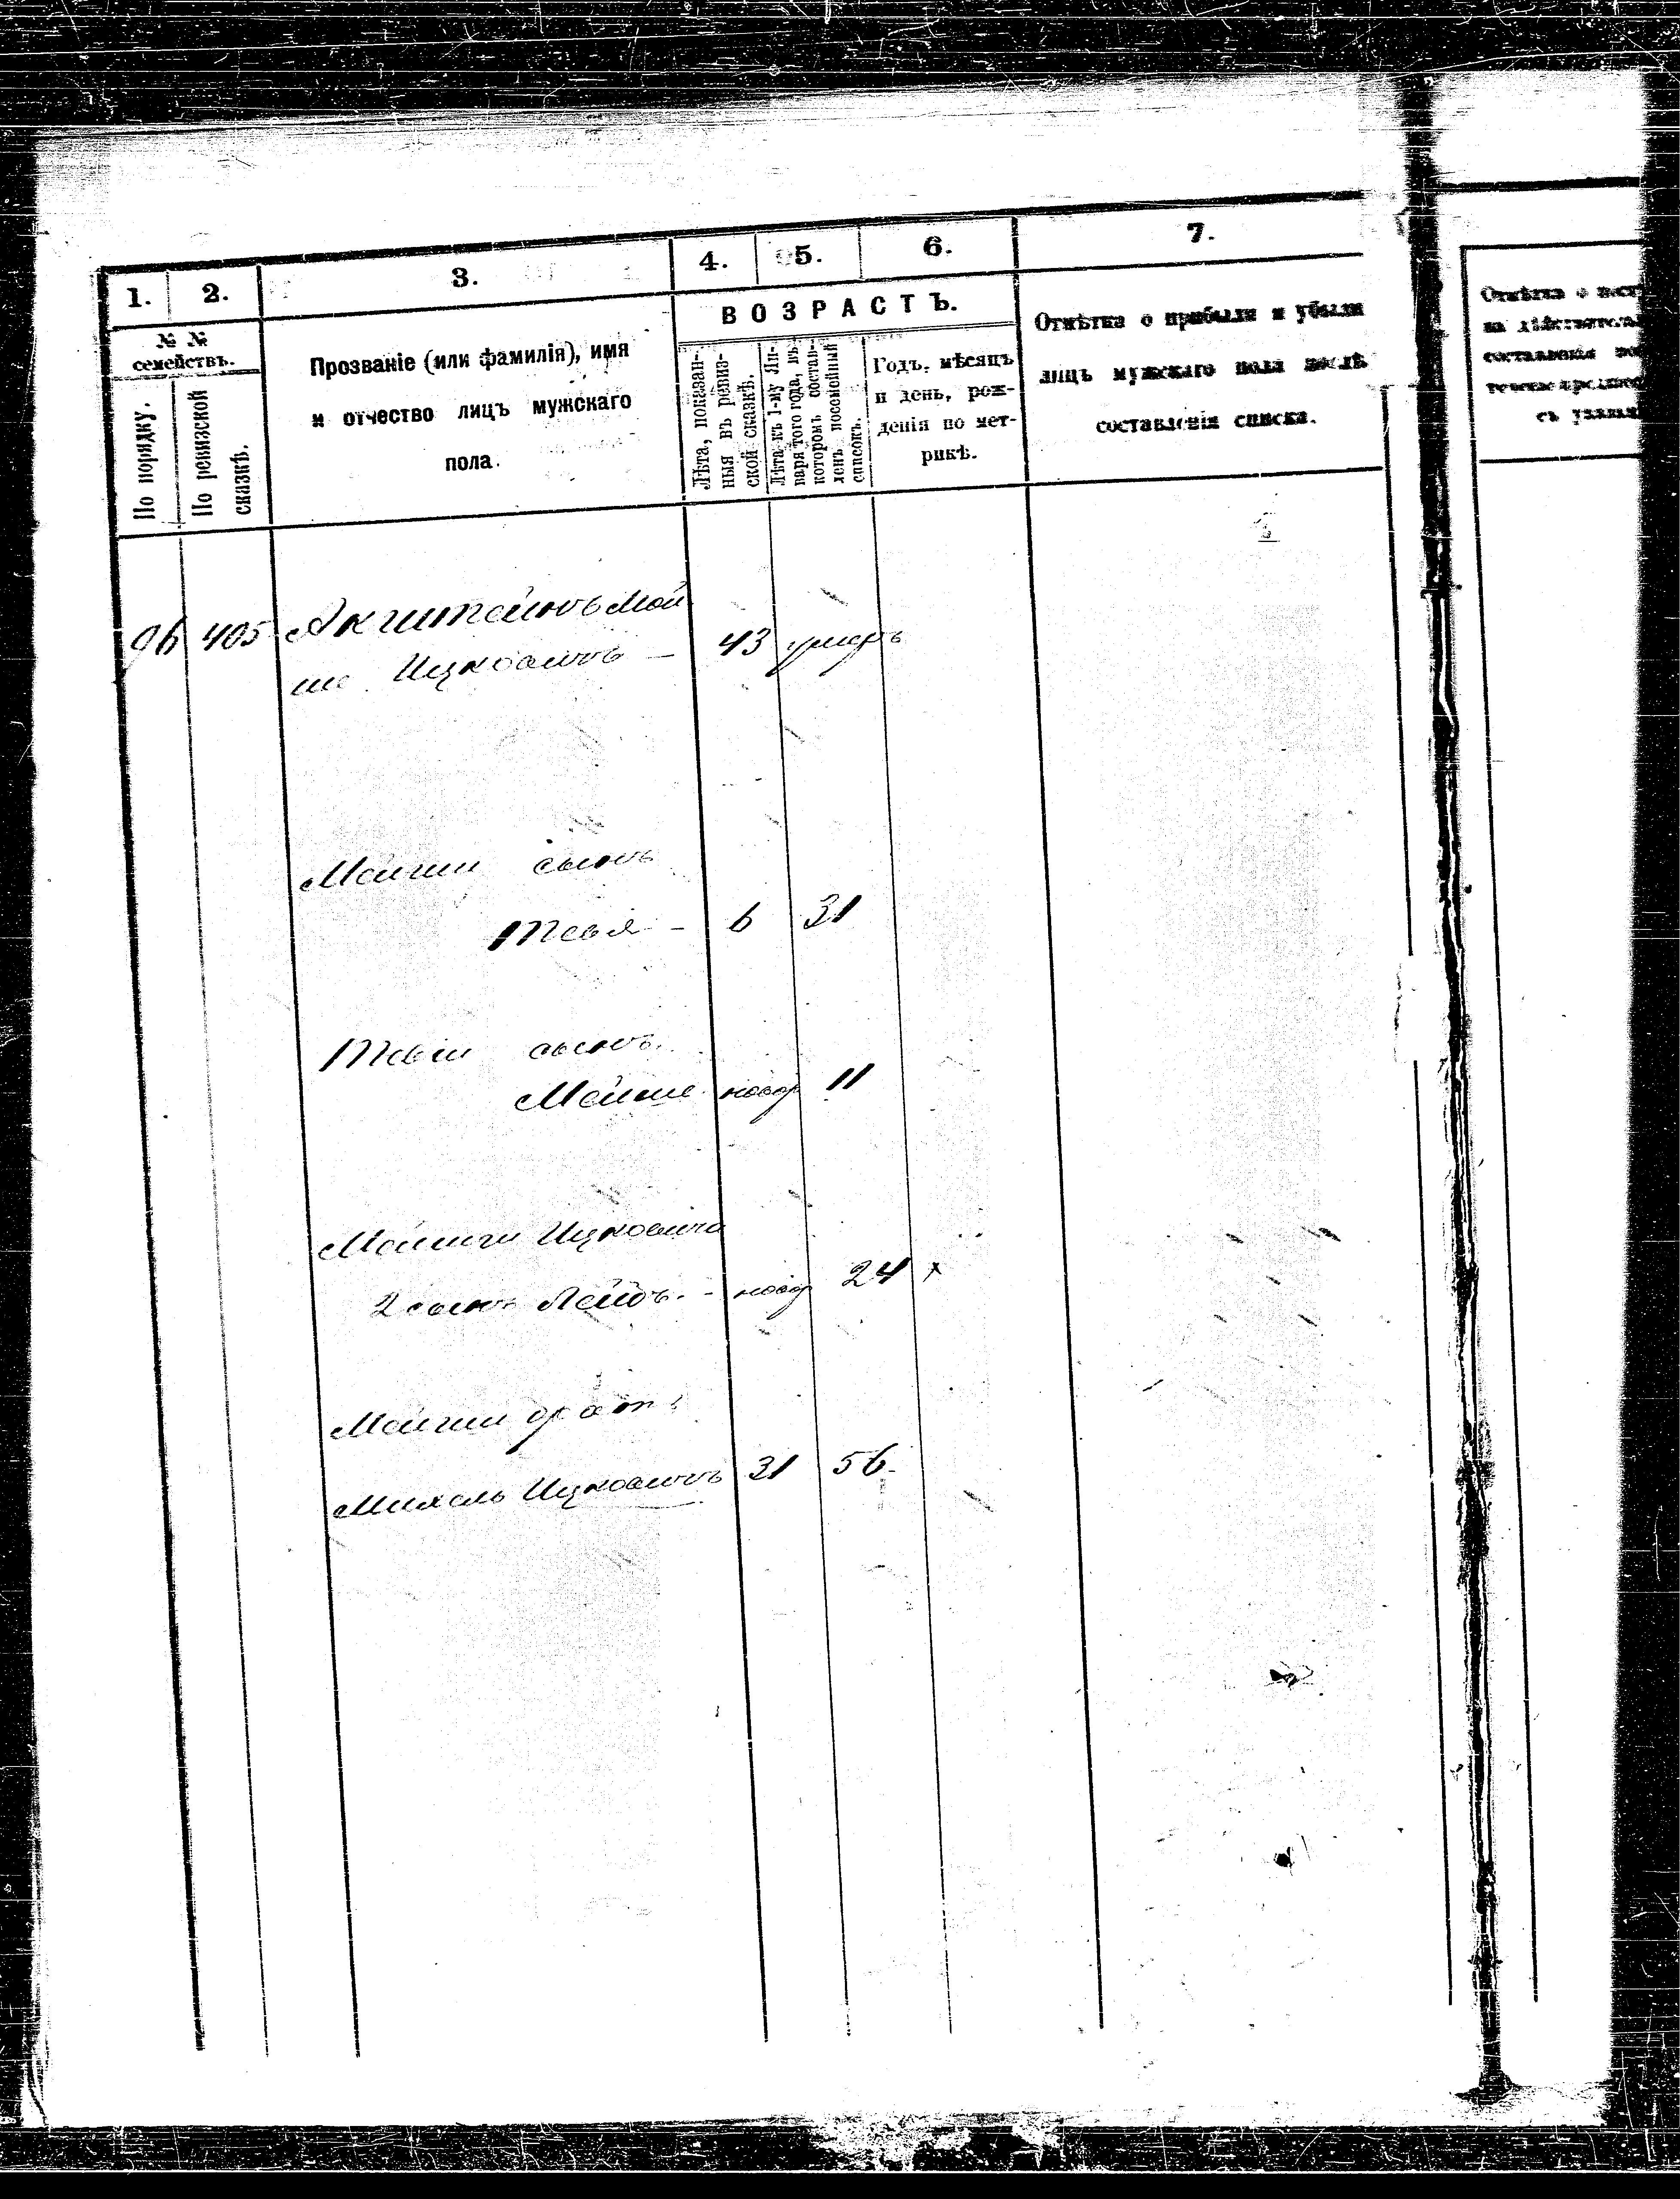 1. 2. 3. 4. 5. 6. 7.
№ №
семействъ.
По порядку.
По ревизской
сказкѣ.
Прозваніе (или фамилія), имя
и отчество лицъ мужскаго
пола.
ВОЗРАСТЪ.
Лѣта, показан-
ныя въ ревиз-
ской сказкѣ.
Лѣта къ 1-му Ян-
варя того года, въ
которомъ состав-
ленъ посемейный
списокъ.
Годъ, мѣсяцъ
и день, рож-
денія по мет-
рикѣ.
Отмѣтка о прибыли и убыли
лицъ мужскаго пола послѣ
составленія списка.
Отмѣтка о
на
составленія
96 405 Акштейнъ Мой
ше Ицковичъ — 43 умеръ
Мойши сынъ
Тевя - 6 31
Тевіи сынъ
Мойше новор 11
Мойши Ицковича
2 сынъ Лейбъ. - новор 24 х
Мойши братъ
Михель Ицковичъ 31 56